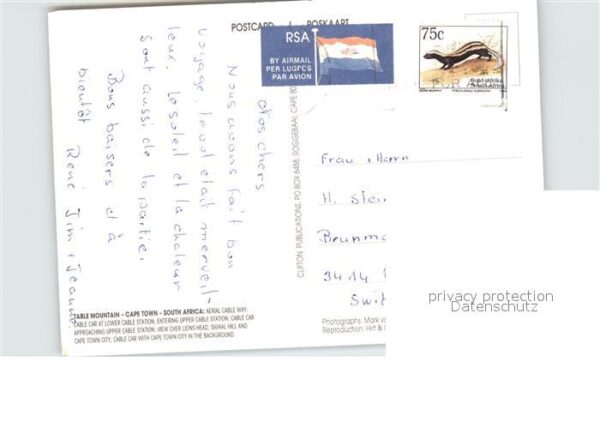 POSTCARD POSKAART
RSA
BY AIRMAIL
PER LUGPOS
PAR AVION
75c
Suid-Afrika
South Africa
Nos chers
Nous avons fait bon
voyage, le vol était merveil-
leux, le soleil et la chaleur
sont aussi de la partie.
Bons baisers et à
bientôt René Jim + Jeanne
CLIFTON PUBLICATIONS, PO BOX 6488, ROGGEBAAI, CAPE
Frau + Herrn
H. Stei
Brunnm
3414
Swit
privacy protection
Datenschutz
TABLE MOUNTAIN - CAPE TOWN - SOUTH AFRICA: AERIAL CABLE WAY.
TABLE CAR AT LOWER CABLE STATION; ENTERING UPPER CABLE STATION; CABLE CAR
APPROACHING UPPER CABLE STATION; VIEW OVER LIONS HEAD, SIGNAL HILL AND
CAPE TOWN CITY, CABLE CAR WITH CAPE TOWN CITY IN THE BACKGROUND
Photographs: Mark
Reproduction: Hirt &